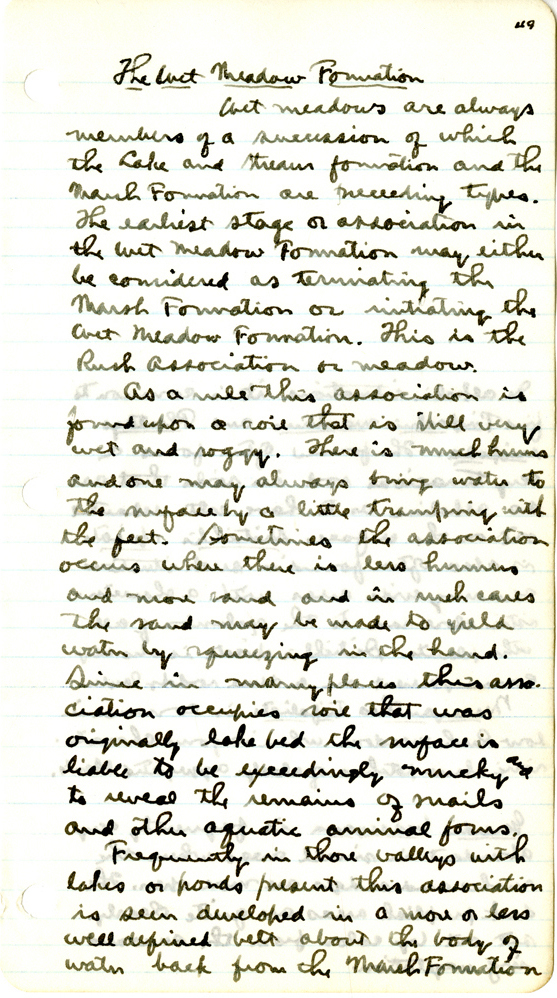 49
The Wet Meadow Formation
Wet meadows are always
members of a succession of which
the Lake and Stream formation and the
Marsh Formation are preceeding types.
The earliest stage or association in
the Wet Meadow Formation may either
be considered as terminating the
Marsh Formation or initiating the
Wet Meadow Formation. This is the
Rush Association or meadow.
As a rule this association is
found upon a soie that is still very
wet and soggy. There is much humus
and one may always bring water to
the surface by a little tramping with
the feet. Sometimes the association
occurs where there is less humus
and more sand and in such cases
the sand may be made to yield
water by squeezing in the hand.
Since in many places this asso-
ciation occupies soie that was
originally lake bed the surface is
liable to be exceedingly mucky and
to reveal the remains of snails
and other aquatic animal forms.
Frequently in those valleys with
lakes or ponds present this association
is seen developed in a more or less
well defined belt about the body of
water back from the Marsh Formation